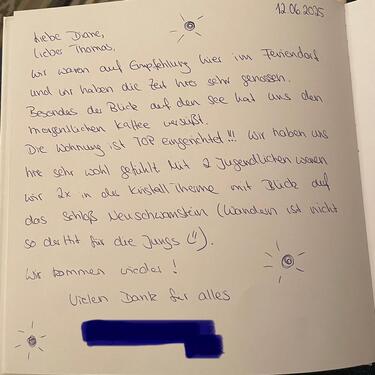 12.06.2025
Liebe Diane,
Lieber Thomas,
wir waren auf Empfehlung hier im Feriendorf
und wir haben die Zeit hier sehr genossen.
Besonders der Blick auf den See hat uns den
morgentlichen Kaffee versüßt.
Die Wohnung ist TOP eingerichtet!!! Wir haben uns
hier sehr wohl gefühlt. Mit 2 Jugendlichen waren
wir 2x in der Kristall-Therme mit Blick auf
das Schloß Neuschwanstein (Wandern ist nicht
so der Hit für die Jungs).
Wir kommen wieder!
Vielen Dank für alles